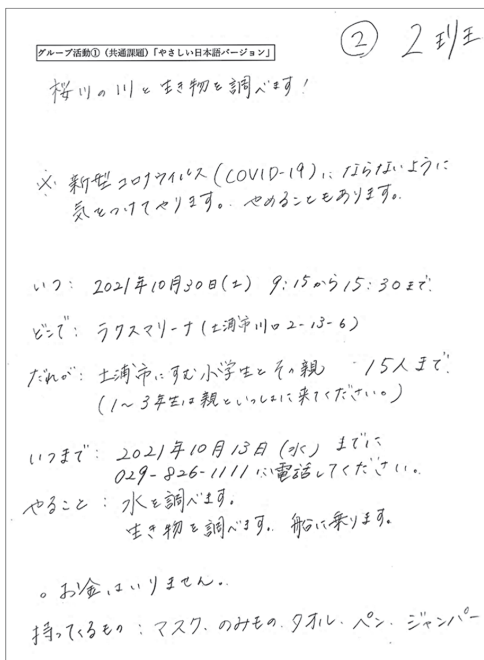 ② 2班
グループ活動①（共通課題）「やさしい日本語バージョン」
桜川の川と生き物を調べます！
※ 新型コロナウイルス(COVID-19)にならないように
気をつけてやります。やめることもあります。
いつ： 2021年10月30日(土) 9:15から15:30まで
どこで： ラクスマリーナ(土浦市川口2-13-6)
だれが： 土浦市にすむ小学生とその親 15人まで
(1～3年生は親といっしょに来てください。)
いつまで： 2021年10月13日(水)までに
029-826-1111に電話してください。
やること： 水を調べます。
生き物を調べます。船に乗ります。
。お金はいりません。
持ってくるもの：マスク、のみもの、タオル、ペン、ジャンパー